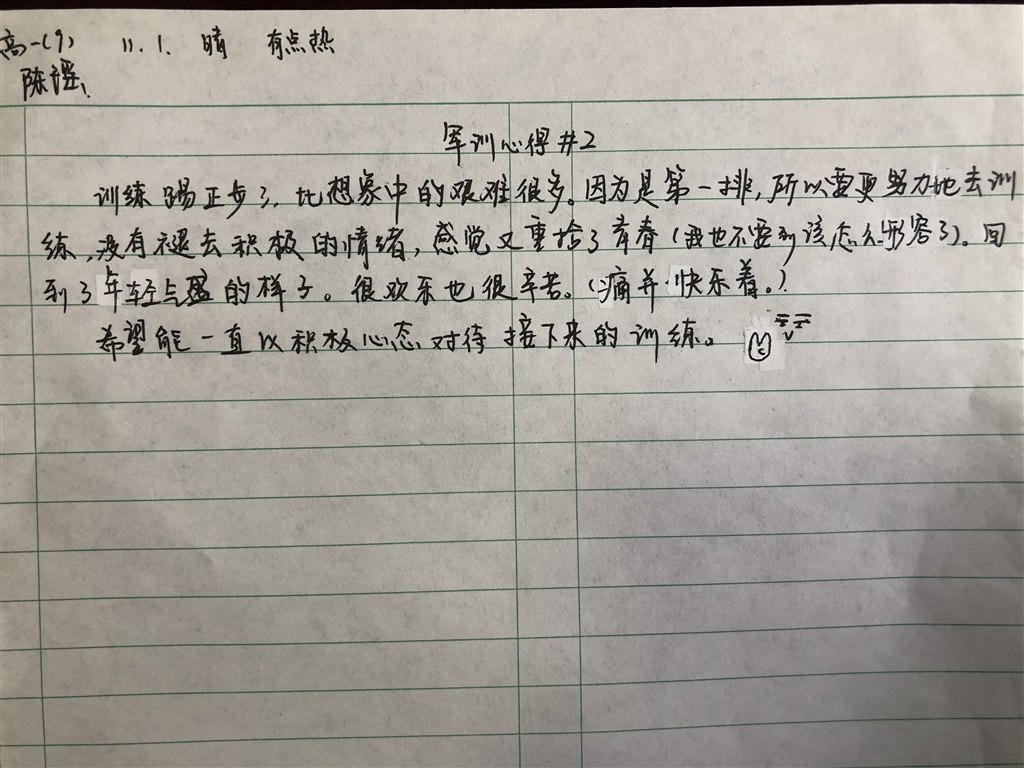 高一(9) 11.1. 晴 有点热
陈谣
军训心得#2
训练踢正步了,比想象中的艰难很多。因为是第一排,所以需更努力地去训
练,没有褪去积极的情绪,感觉又重拾了青春(我也不要到该怎么形容了)。回
到了年轻气盛的样子。很欢乐也很辛苦。(痛并快乐着。)
希望能一直以积极心态对待接下来的训练。